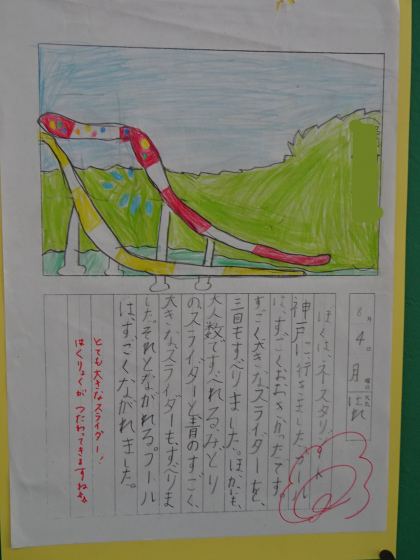 8月4日月曜日天気はれ
ぼくは、ネスタリ
神戸に行きました。プール
は、すごくおおきかったです。
すごく大きなスライダーを、
三回もすべりました。ほかにも、
大人数ですべれるみどり
のスライダーと青のすごく、
大きなスライダーもすべりま
した。それとながれるプール
は、すごくながれました。
とても大きなスライダー!
はくりょくが つたわってきますね。